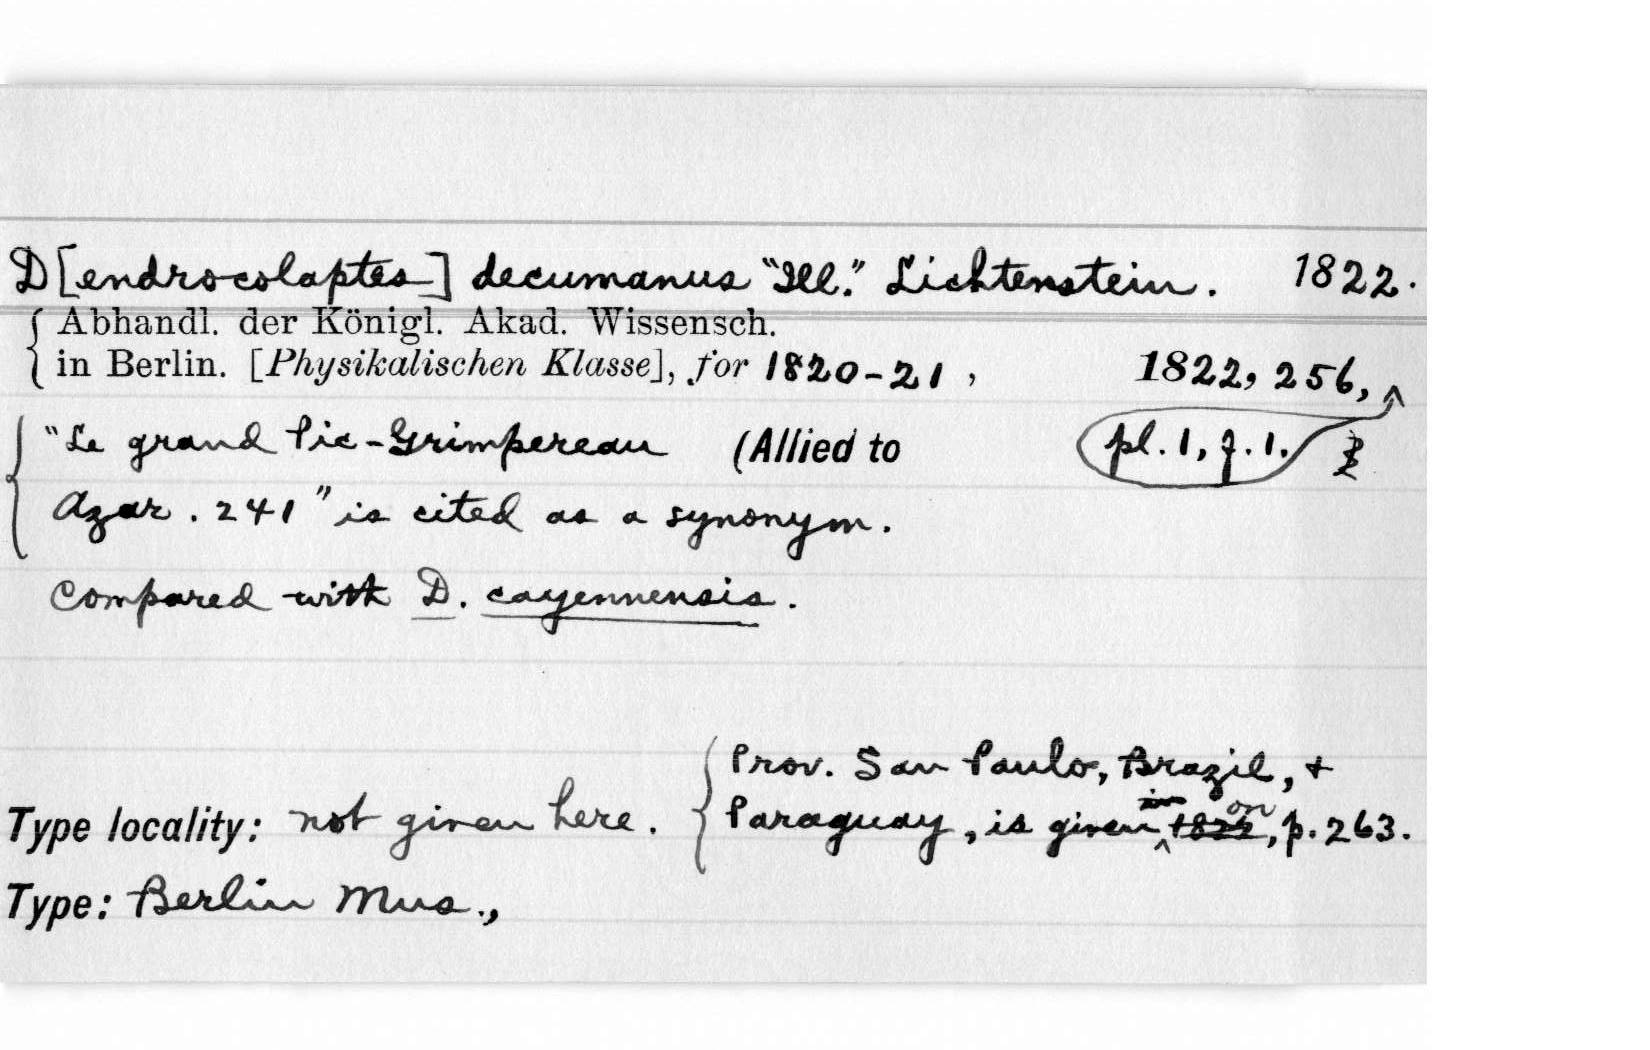 D[endrocolaptes] decumanus "Ill." Lichtenstein. 1822.
Abhandl. der Königl. Akad. Wissensch.
in Berlin. [Physikalischen Klasse], for 1820-21, 1822, 256,
"Le grand Pic-Grimpereau (Allied to pl. 1, f. 1.
Azar. 241" is cited as a synonym.
Compared with D. cayennensis.
Prov. San Paulo, Brazil, +
Type locality: not given here. Paraguay, is given on, p. 263.
Type: Berlin Mus.,